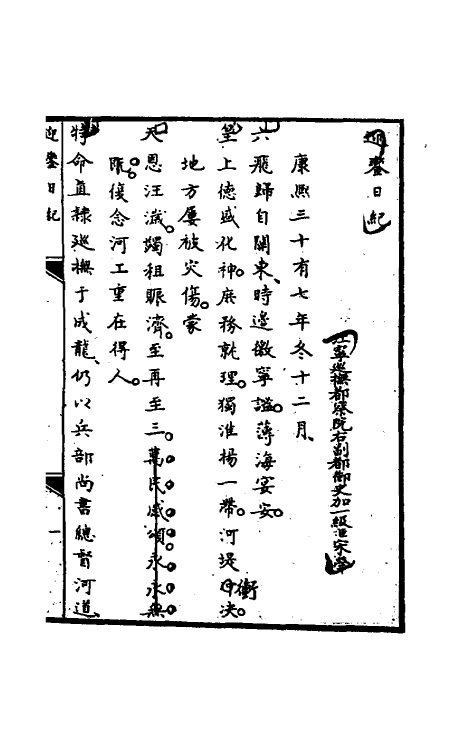 迎鑾日紀
江寧巡撫都察院右副都御史加一級臣宋犖
康熙三十有七年冬十二月
六飛歸自關東時邊徼寧謐薄海宴安
皇上德盛化神庶務就理獨淮揚一帶河堤衝決
地方屢被災傷蒙
天恩汪濊蠲租賑濟至再至三萬民感頌永永無
隁復念河工重在得人
特命直隸巡撫于成龍仍以兵部尚書總督河道
迎鑾日紀
一